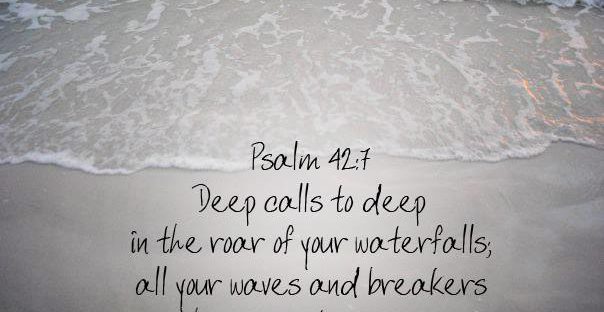 Psalm 42:7
Deep calls to deep
in the roar of your waterfalls;
all your waves and breakers